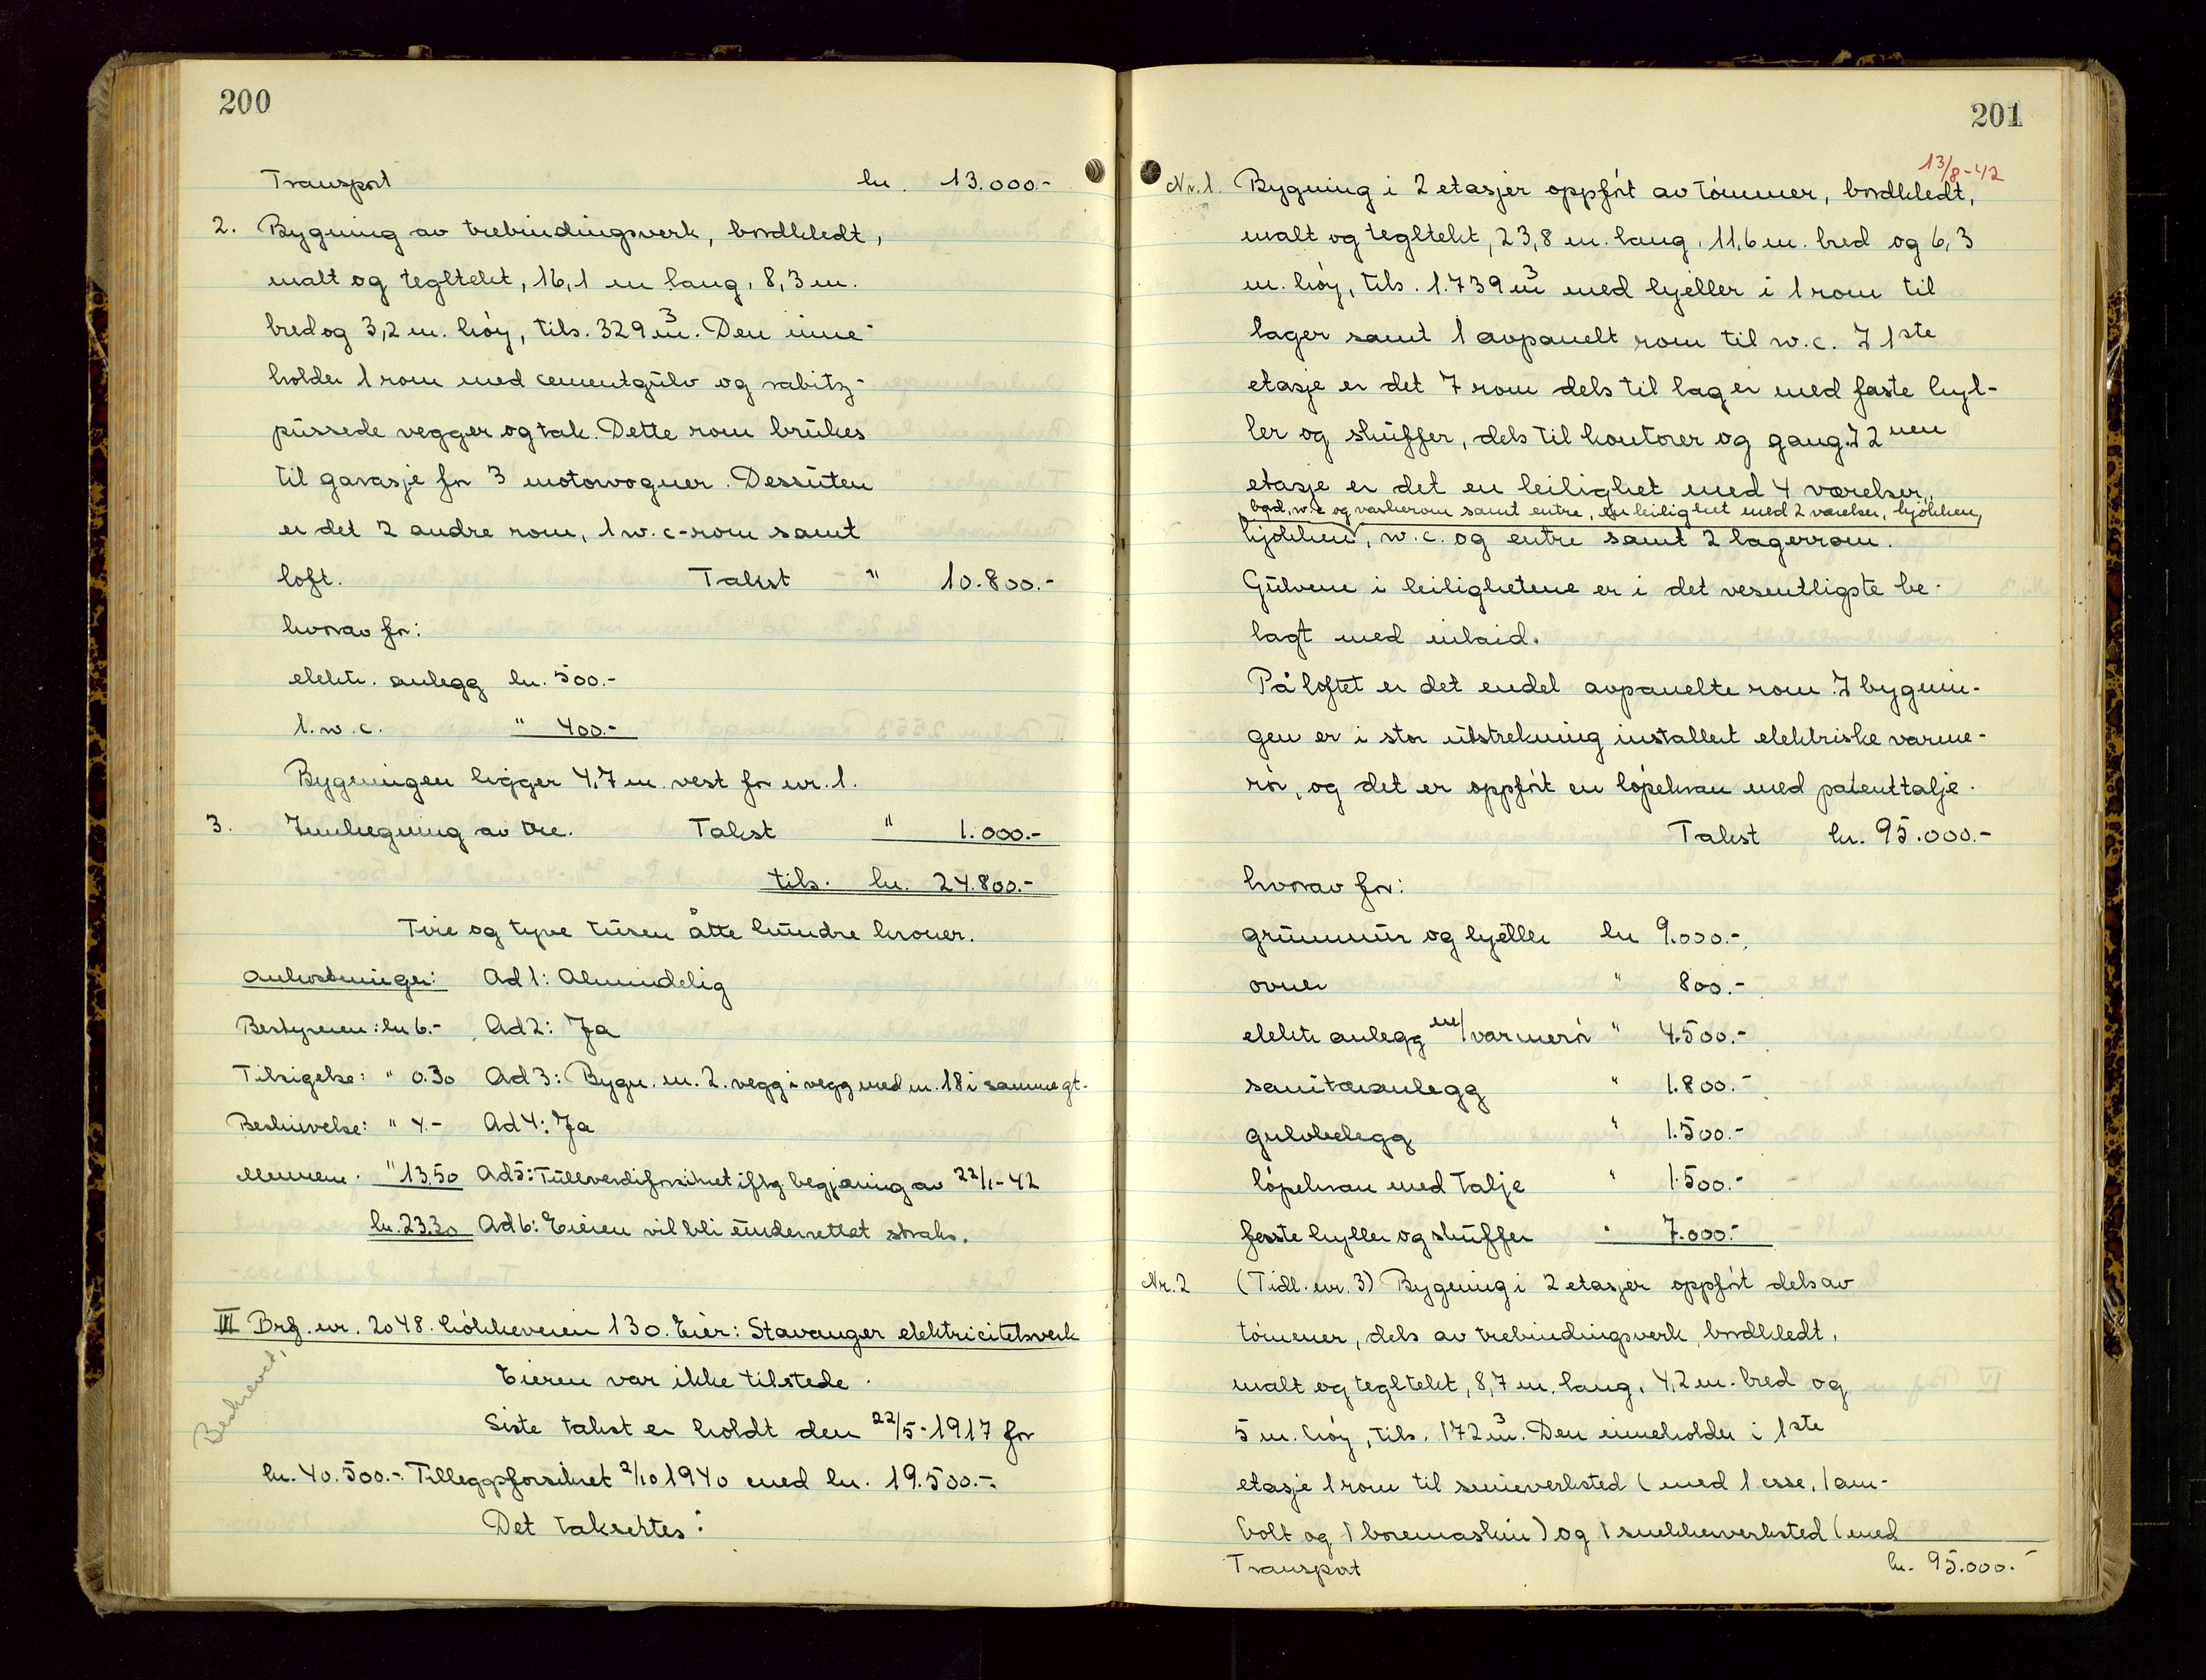 200
Transport kr. 13.000.-
2. Bygning av trebindingsverk, bordkledt,
malt og tegltekt, 16,1 m lang, 8,3 m.
bred og 3,2 m. høy, tils. 329 m³. Den inne-
holder 1 rom med cementgulv og rabitz-
pussede vegger og tak. Dette rom brukes
til garasje for 3 motorvogner. Dessuten
er det 2 andre rom, 1 w.c-rom samt
loft. Takst " 10.800.-
hvorav for:
elektr. anlegg kr. 500.-
1. w.c. " 400.-
Bygningen ligger 4,7 m. vest for nr. 1.
3. Innhegning av tre. Takst " 1.000.-
tils. kr. 24.800.-
Fire og tyve tusen åtte hundre kroner.
Omkostninger: Ad 1: Almindelig
Bestyreren: kr 6.- Ad 2: Ja
Tilsigelse: " 0.30 Ad 3: Bygn. nr. 2. vegg i vegg med nr. 18 i samme gt.
Beskrivelse: " 4.- Ad 4: Ja
Mennene. " 13.50 Ad 5: Fullverdiforsikret iflg. begjæring av 22/1-42
kr. 23.30 Ad 6: Eieren vil bli underrettet straks.
III Brf. nr. 2048. Lökkeveien 130. Eier: Stavanger elektricitetsverk
Beskrevet,
Eieren var ikke tilstede.
Siste takst er holdt den 22/5-1917 for
kr. 40.500.-. Tilleggsforsikret 2/10 1940 med kr. 19.500.-.
Det taksertes:
201
13/8-42
Nr. 1. Bygning i 2 etasjer oppført av tømmer, bordkledt,
malt og tegltekt, 23,8 m. lang, 11,6 m. bred og 6,3
m. høy, tils. 1.739 m³ med kjeller i 1 rom til
lager samt 1 avpanelt rom til w.c. I 1ste
etasje er det 7 rom dels til lager med faste hyl-
ler og skuffer, dels til kontorer og gang. I 2nen
etasje er det en leilighet med 4 værelser,
bad, w.c og vaskerom samt entre, en leilighet med 2 værelser, kjøkken,
kjøkken, w.c. og entre samt 2 lagerrom.
Gulvene i leilighetene er i det vesentligste be-
lagt med inlaid.
På loftet er det endel avpanelte rom. I bygnin-
gen er i stor utstrekning installert elektriske varme-
rør, og det er oppført en løpekran med patenttalje.
Takst kr. 95.000.-
hvorav for:
grunnmur og kjeller kr 9.000.-
ovner " 800.-
elektr anlegg m/varmerør " 4.500.-
sanitæranlegg " 1.800.-
gulvbelegg " 1.500.-
løpekran med talje " 1.500.-
faste hyller og skuffer " 7.000.-
Nr. 2 (Tidl. nr. 3) Bygning i 2 etasjer oppført dels av
tømmer, dels av trebindingsverk, bordkledt,
malt og tegltekt, 8,7 m. lang, 4,2 m. bred og
5 m. høy, tils. 172 m³. Den inneholder i 1ste
etasje 1 rom til smieverksted (med 1 esse, 1 am-
bolt og 1 boremaskin) og 1 snekkerverksted (med
Transport kr. 95.000.-